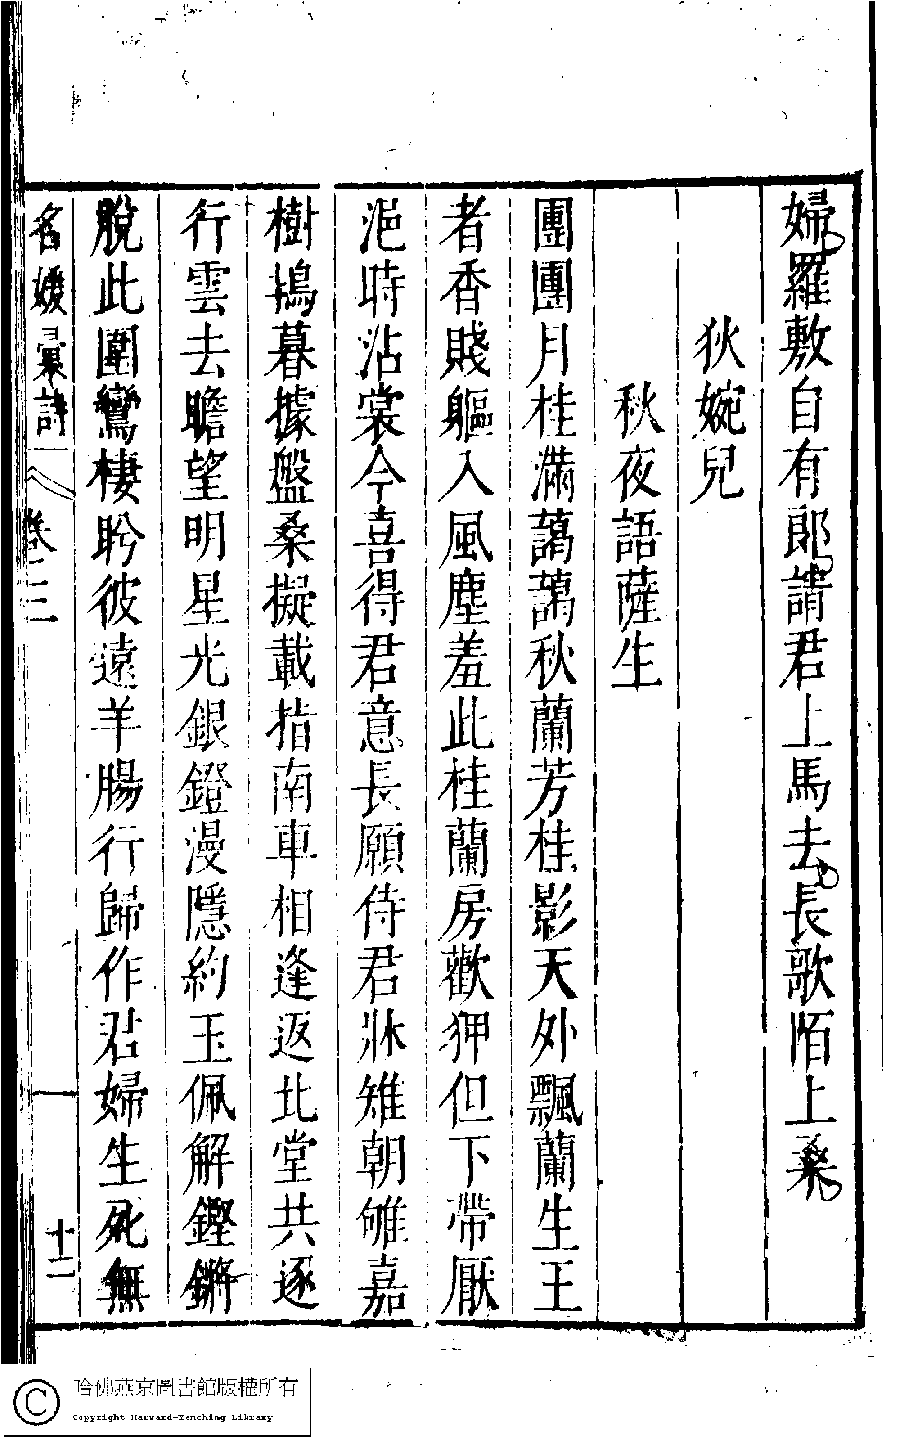 婦羅敷自有郎請君上馬去長歌陌上桑
狄婉兒
秋夜語薩生
團團月桂滿藹藹秋蘭芳桂影天外飄蘭生王
者香賤軀入風塵羞此桂蘭房歡狎但下帶厭
浥時沾裳今喜得君意長願侍君牀雉朝雊嘉
樹鴇暮據盤桑擬載指南車相逢返北堂共逐
行雲去瞻望明星光銀鐙漫隱約玉佩解鏗鏘
脫此圍鸞棲盻彼遠羊腸行歸作君婦生死無
名媛彙詩
卷三
十二
哈佛燕京圖書館版權所有
Copyright Harvard-Yenching Library